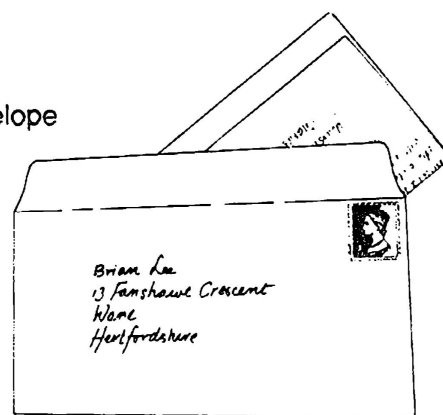 elope
Brian Lee
13 Fanshawe Crescent
Ware
Hertfordshire